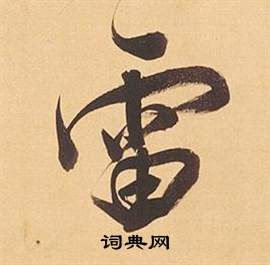 雷
词典网